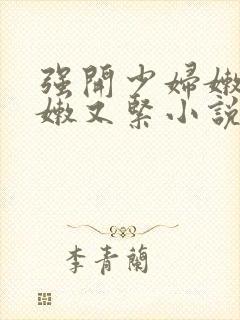 强開少婦嫩
嫩又緊小說
李青蘭